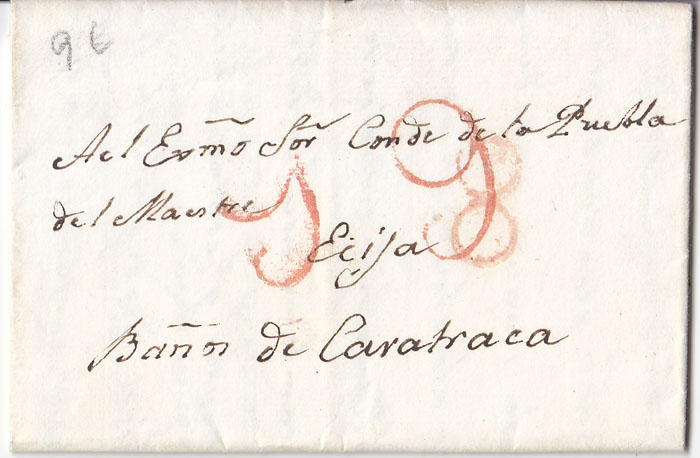 9 E
Ael Exmo Sor Conde de la Puebla
del Maestre
Ecija
Baños de Caratraca